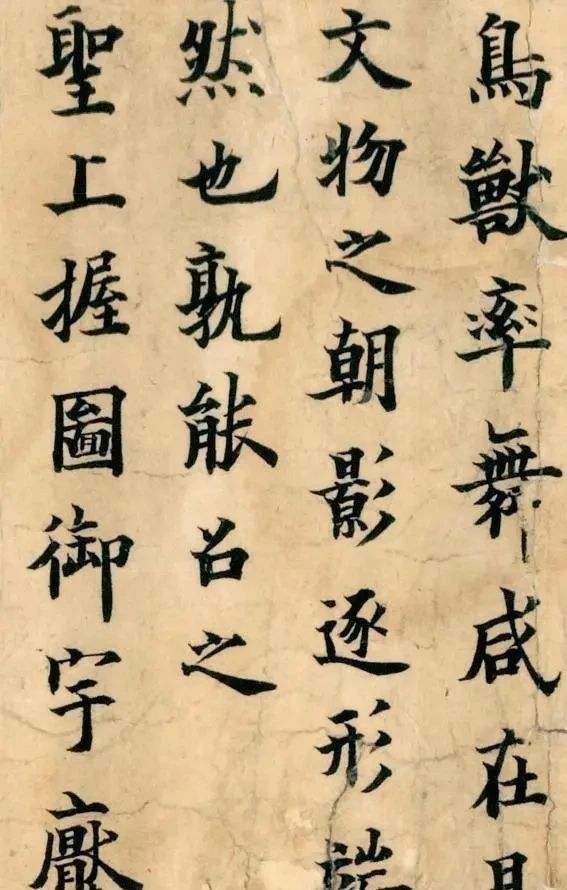 鳥獸率舞咸在
文物之朝影逐形
然也孰能召之
聖上握圖御宇